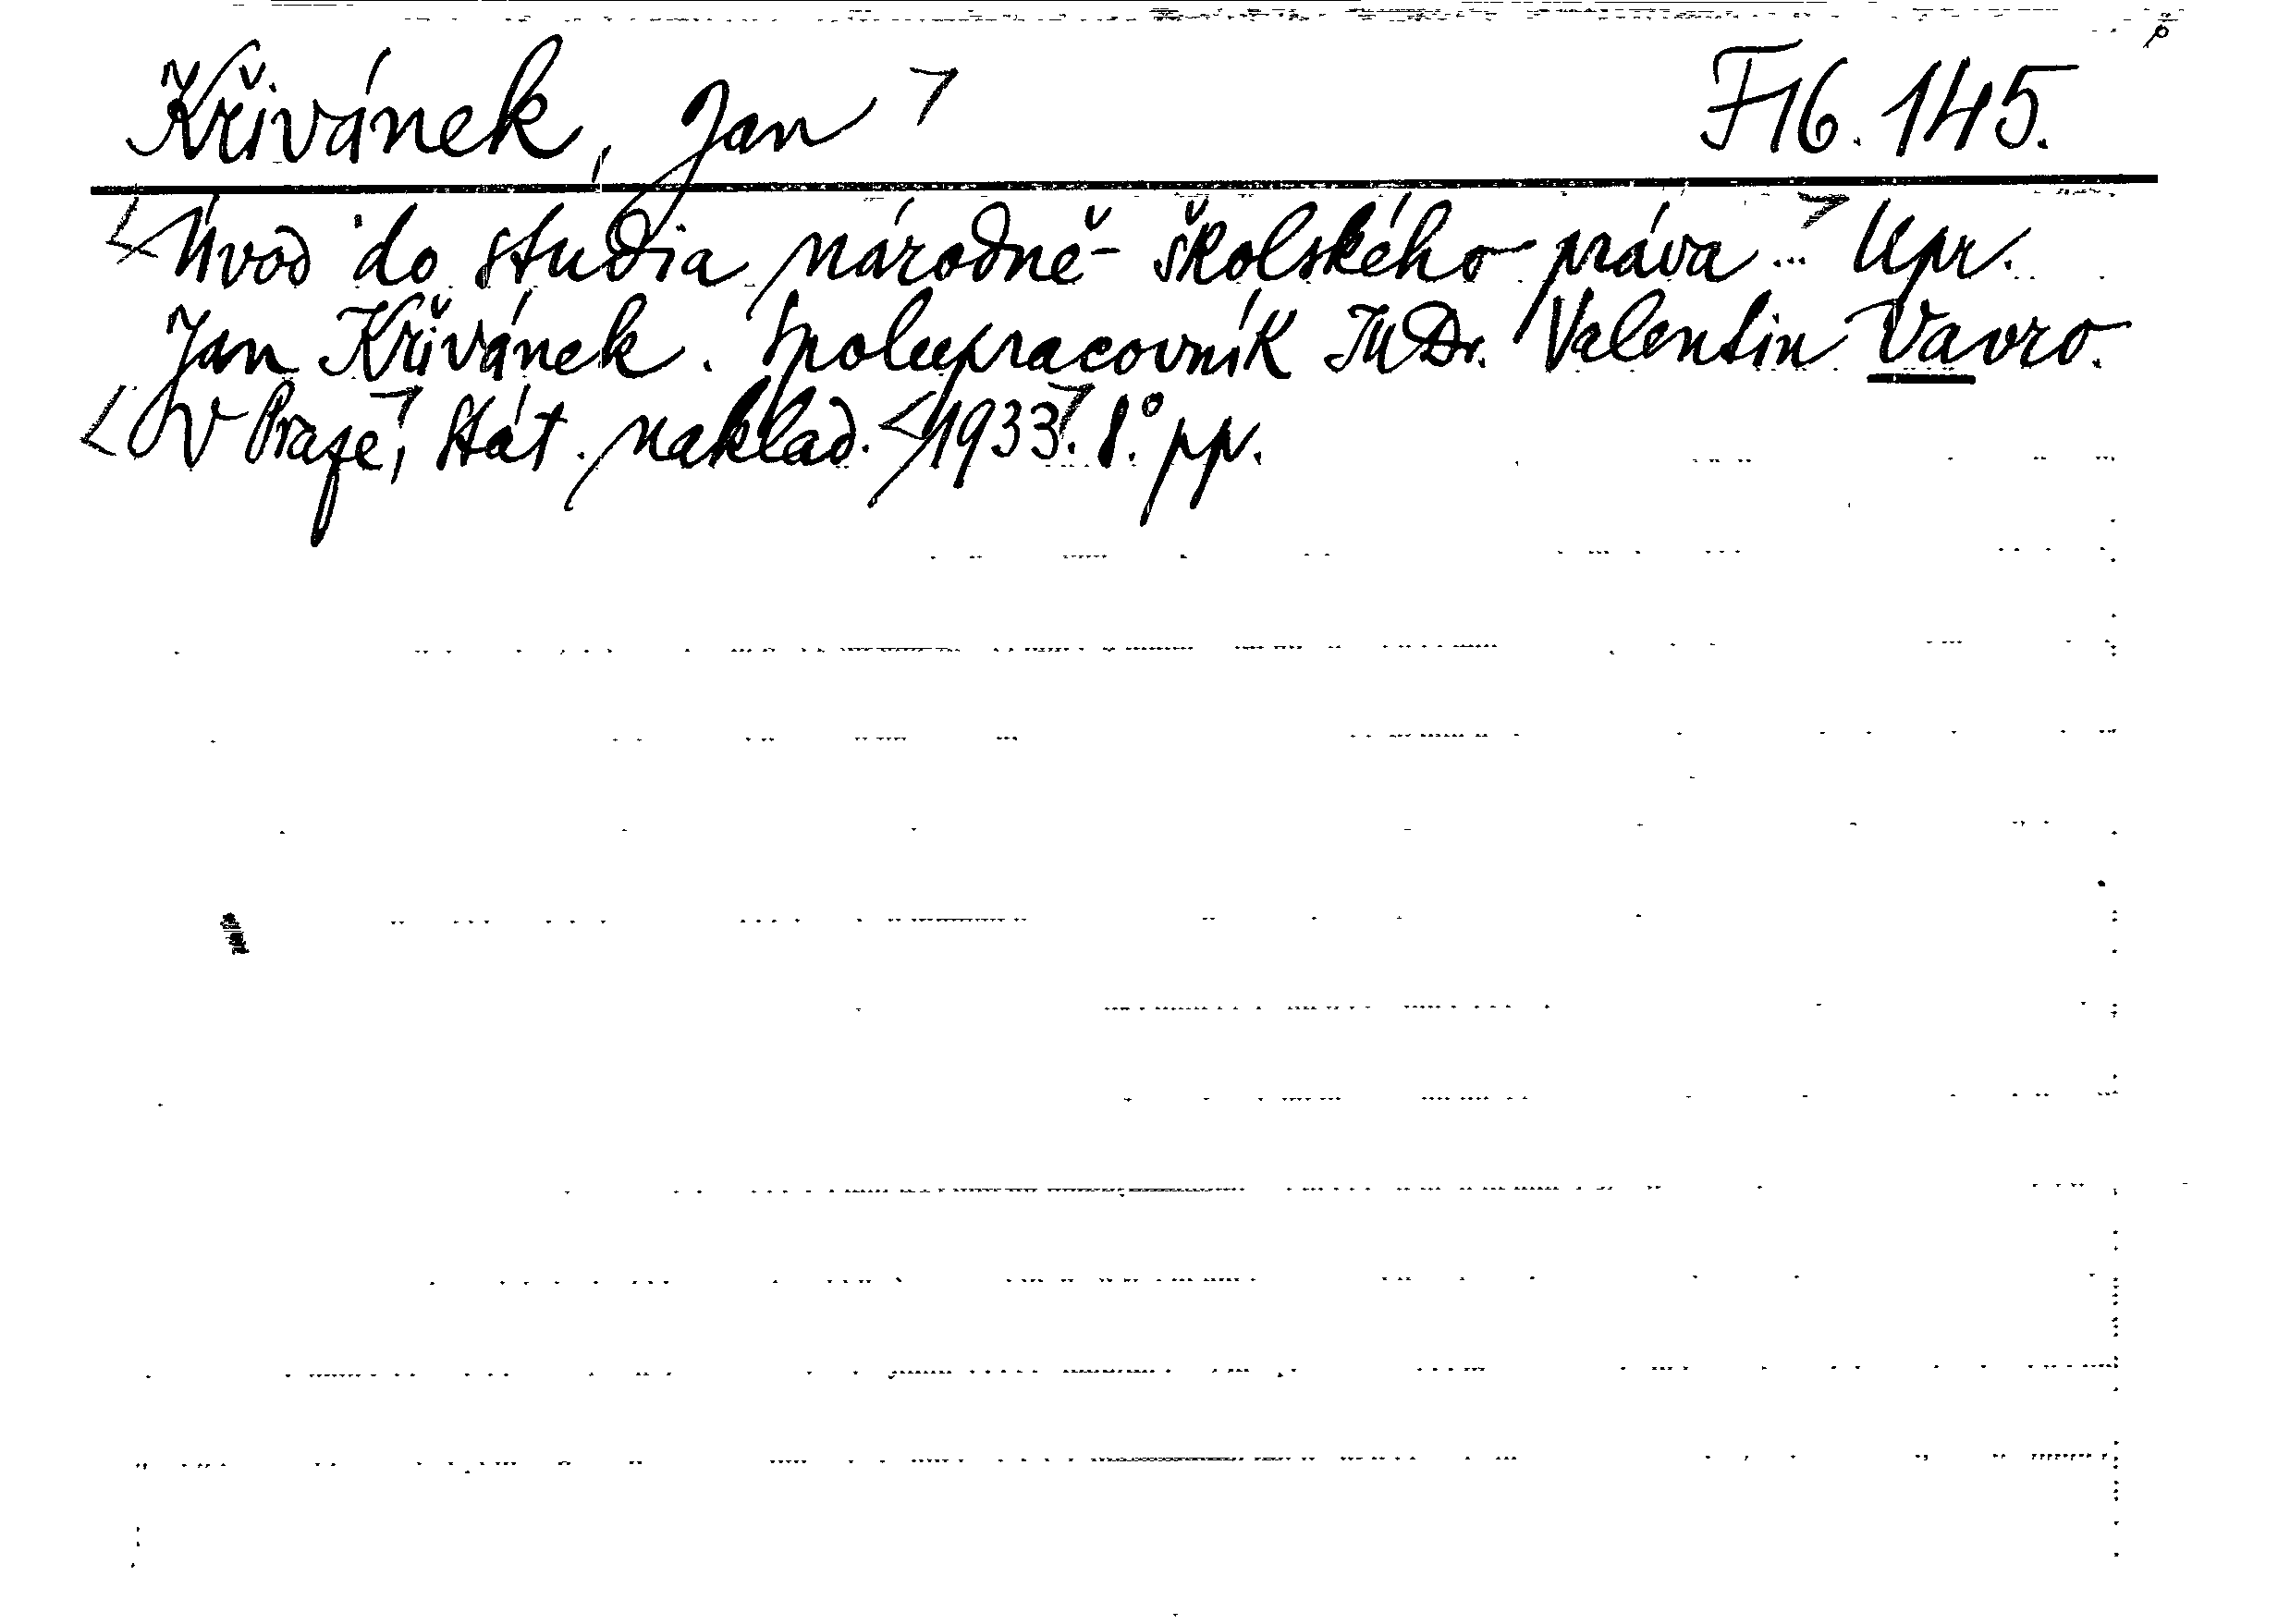 Křivánek, Jan F16.145.
Úvod do studia národně-školského práva... Upr.
Jan Křivánek. Spolupracovník JUDr. Valentin Vavro.
V Praze, Stát. naklad. 1933. 8°. pp.